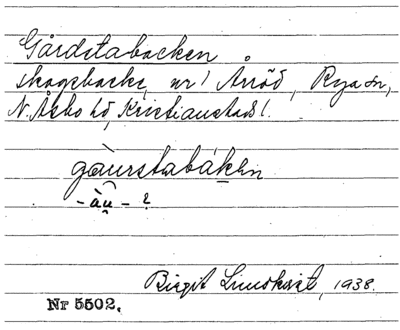 Gårdstabacken
skogsbacke, nr 1 Årröd, Rya sn,
N. Åsbo hd, Kristianstads l.
gàu̯rstabákən
- àu̯ - ?
Birgit Lindkvist, 1938.
Nr 5502.